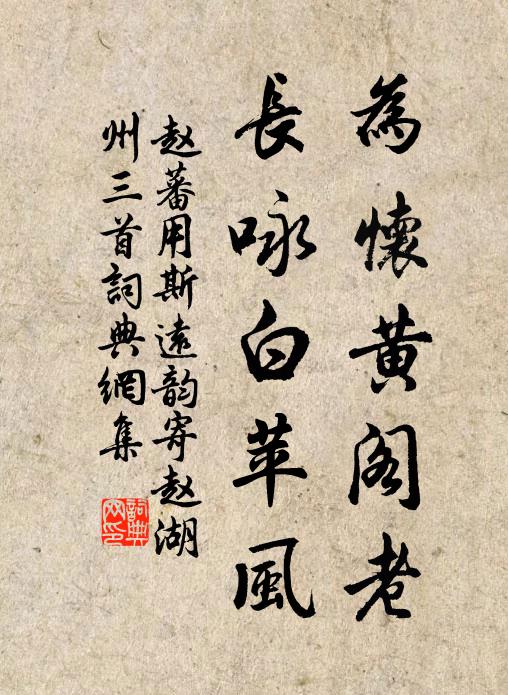 為懷黄阁老
長咏白苹風
赵蕃用斯遠韵寄赵湖
州三首詞典網集
詞典
网印